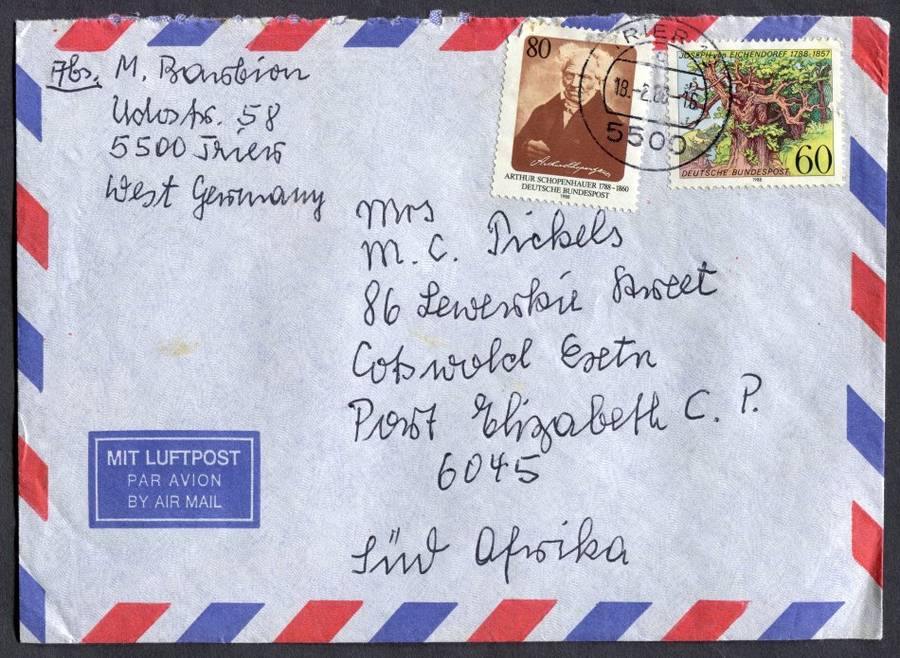 Abs. M. Barbion
Udostr. 58
5500 Trier
West Germany
80
Arthur Schopenhauer
ARTHUR SCHOPENHAUER 1788-1860
DEUTSCHE BUNDESPOST
1988
TRIER 1
18.-2.88-16
5500
JOSEPH von EICHENDORFF 1788-1857
60
DEUTSCHE BUNDESPOST
1988
Mrs
M. C. Pickels
86 Lewerkie Street
Cotswold Extn
Port Elizabeth C. P.
6045
Süd Afrika
MIT LUFTPOST
PAR AVION
BY AIR MAIL